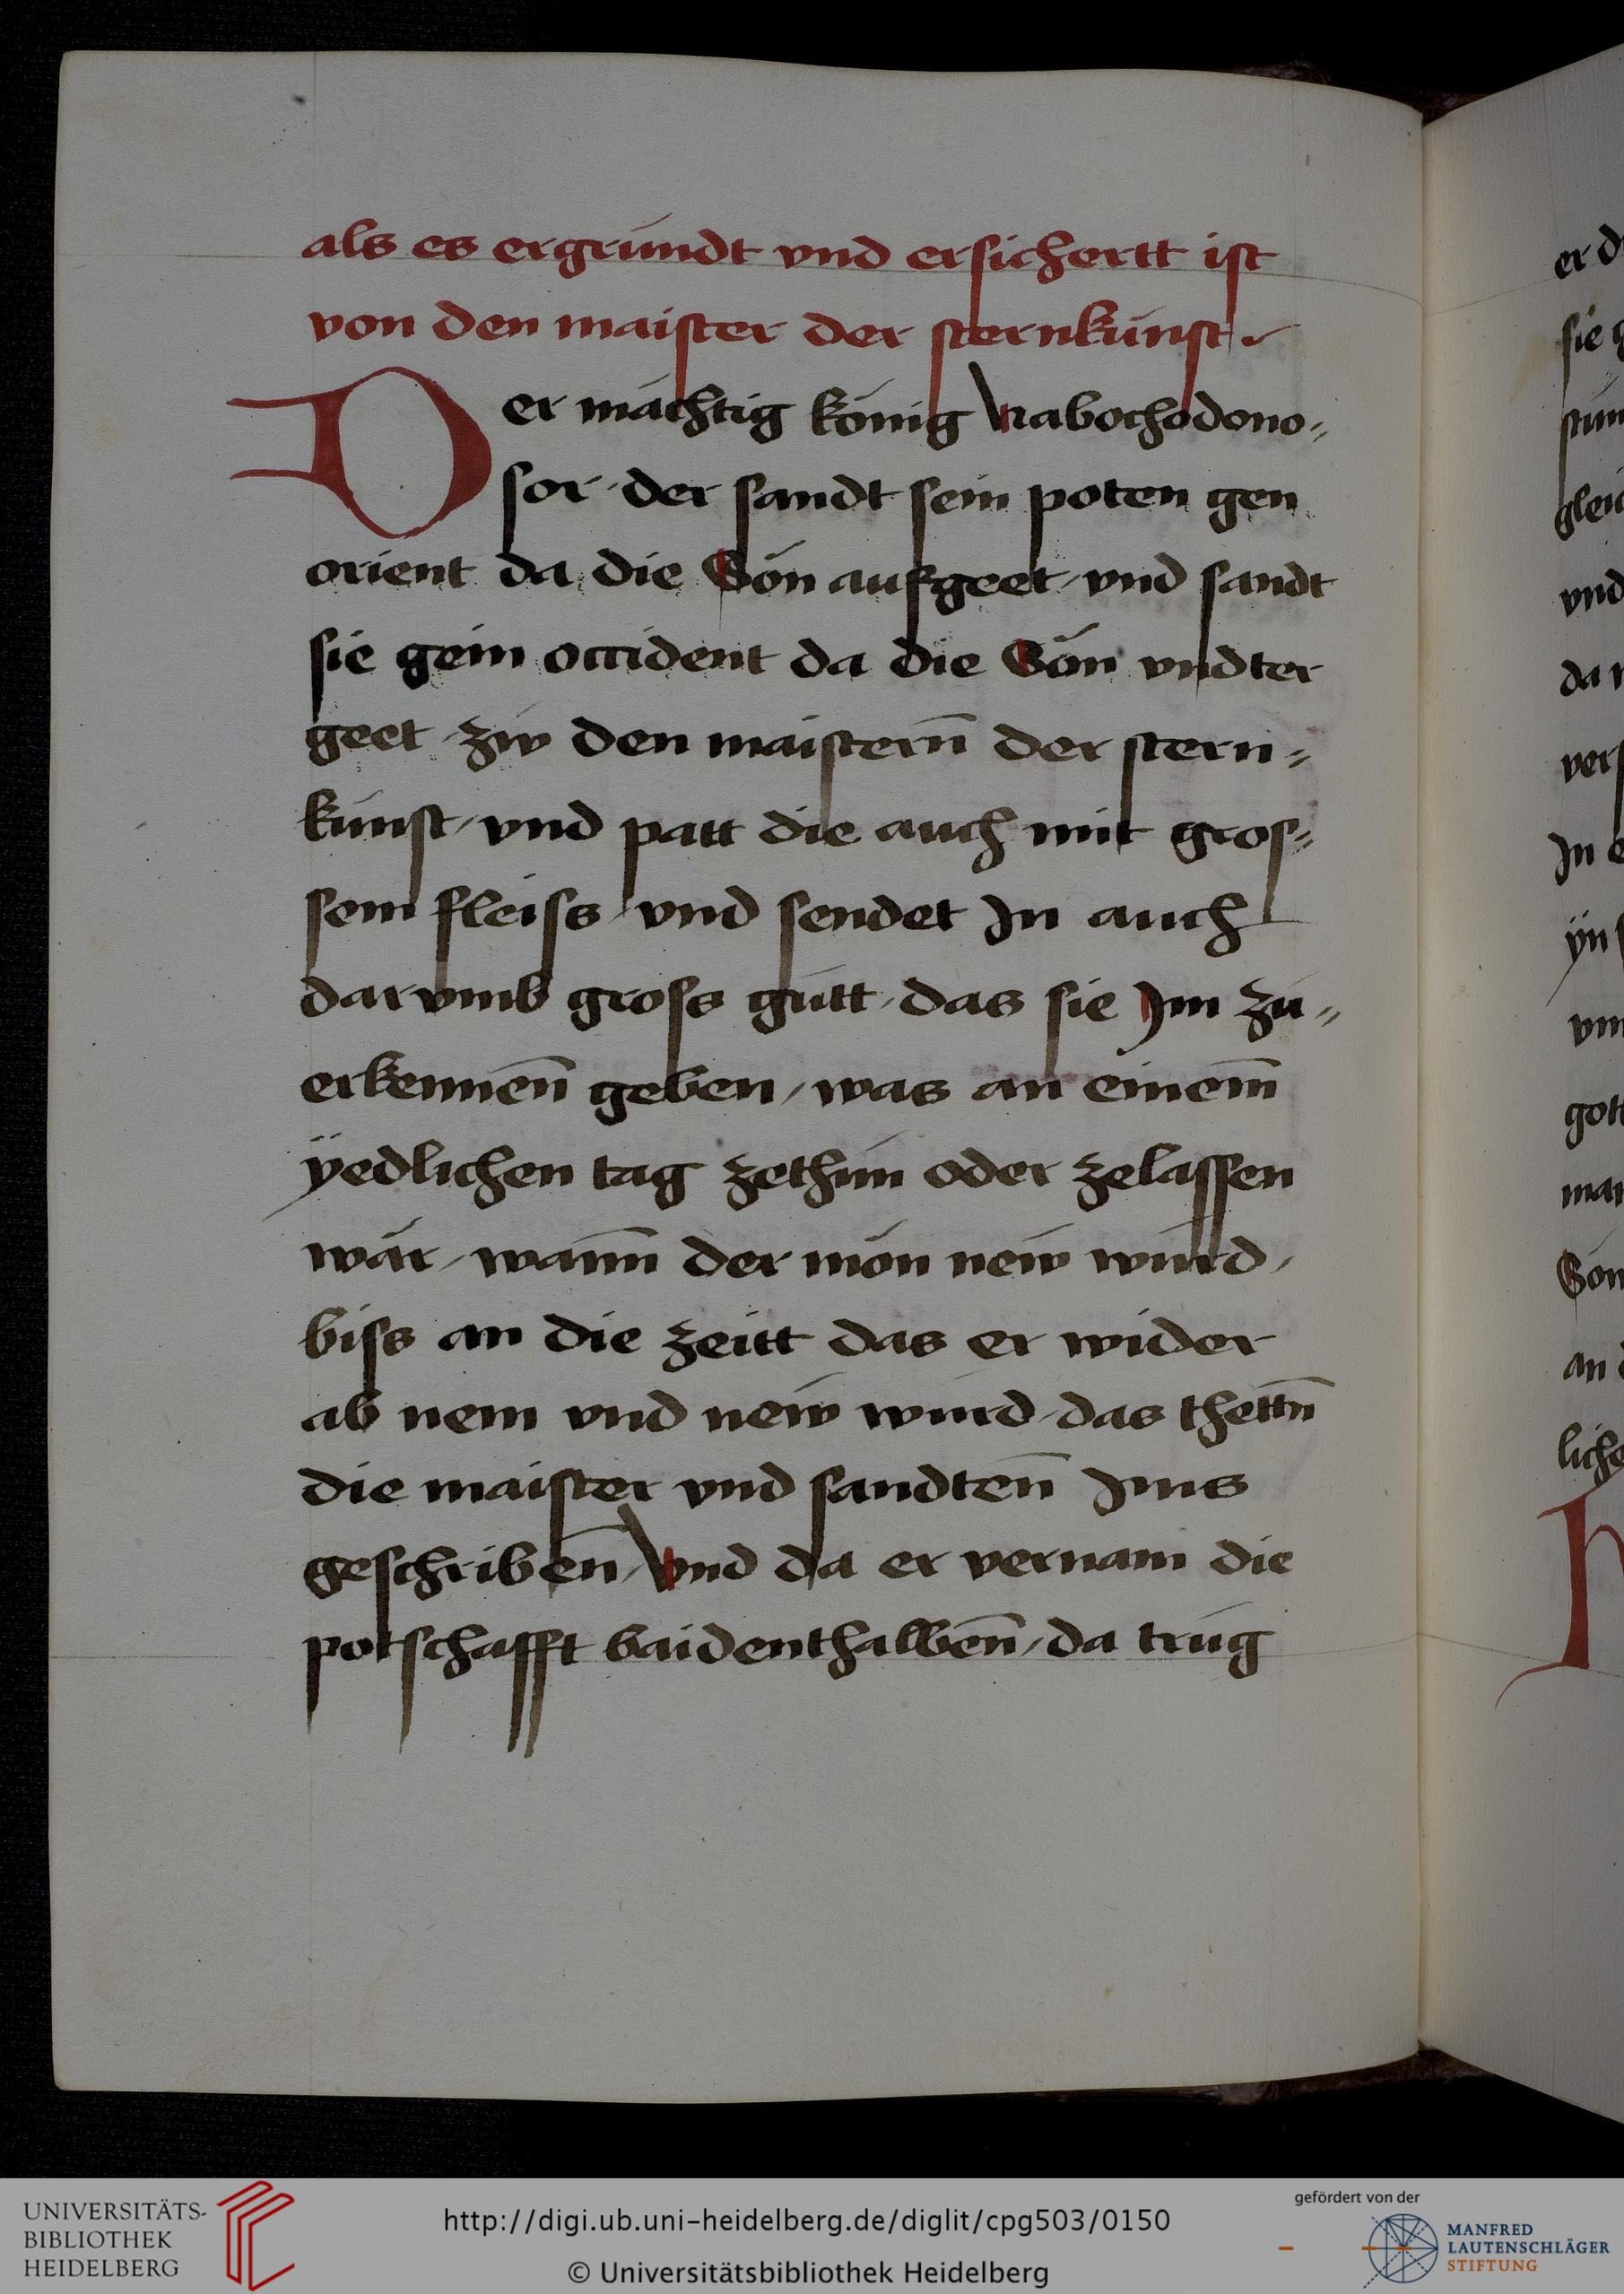 als es ergründt vnd ersichertt ist
von den maister der sternkunst.
Der mächtig könig Nabochodono⸗
sor der sandt sein poten gen
orient da die Sön aufgeet / vnd sandt
sie gein occident da die Sön vndter
geet / zw den maistern̄ der stern⸗
kunst / vnd patt die auch mit gros⸗
sem fleiss / vnd sendet In auch
darvmb gross gůtt / das sie Im zu⸗
erkennen̄ geben / was an einem̄
ÿedlichen tag zethun oder zelassen
wär / wann̄ der mön new wurd /
biss an die zeitt das er wider
ab nem vnd new wurd / das thettn̄
die maister vnd sandten̄ Ims
geschriben̄ / Vnd da er vernam die
potschafft baidenthalben̄ / da trůg
er d
sie g
stun
glei
vnd
da
ver
In
ÿn
vm
got
ma
Sön
an
liche
UNIVERSITÄTS-
BIBLIOTHEK
HEIDELBERG
http://digi.ub.uni-heidelberg.de/diglit/cpg503/0150
© Universitätsbibliothek Heidelberg
gefördert von der
MANFRED
LAUTENSCHLÄGER
STIFTUNG